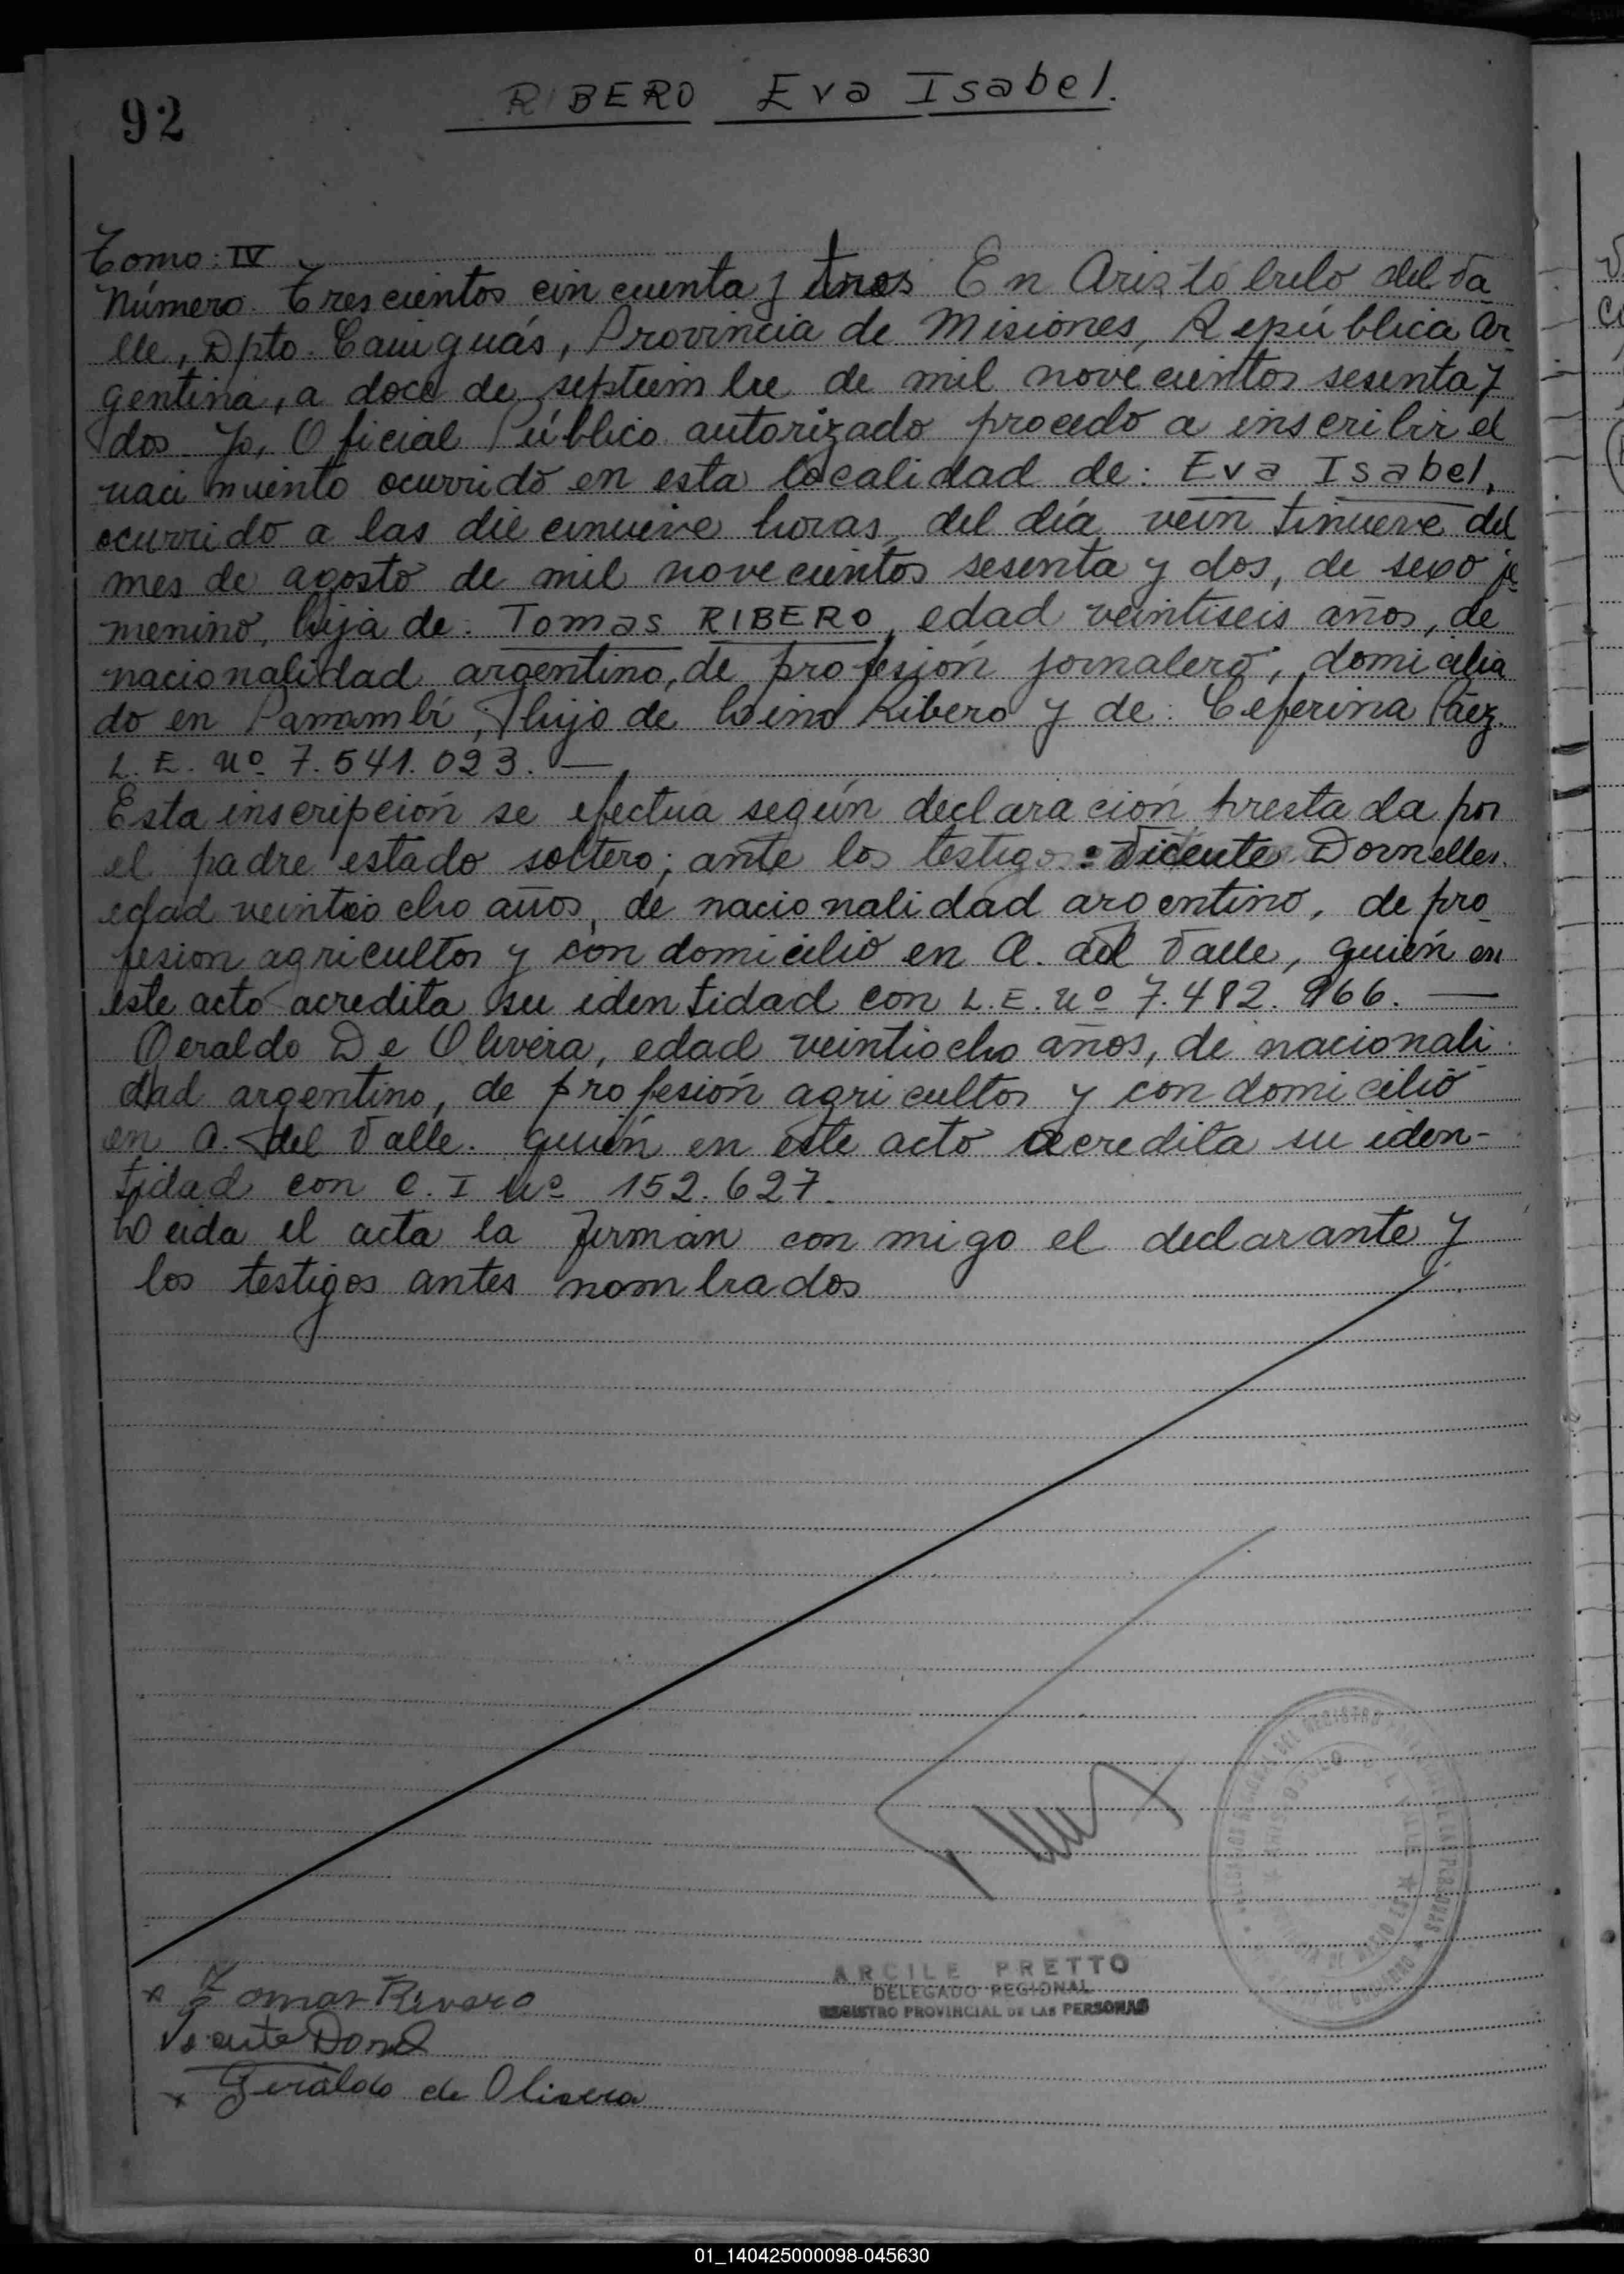 92
RIBERO Eva Isabel.
Tomo: IV
Número. Trescientos cincuenta y tres En Aristóbulo del Va
lle, Dpto. Cainguás, Provincia de Misiones, República Ar
gentina, a doce de septiembre de mil novecientos sesenta y
dos. Yo, Oficial Público autorizado procedo a inscribir el
nacimiento ocurrido en esta localidad de: Eva Isabel,
ocurrido a las diecinueve horas, del día veintinueve del
mes de agosto de mil novecientos sesenta y dos, de sexo fe
menino, hija de: Tomas RIBERO, edad veintiseis años, de
nacionalidad argentino, de profesión jornalero, domicilia
do en Panambí, hijo de Lino Ribero y de: Ceferina Páez.
L. E. Nº 7.541.023. —
Esta inscripción se efectua según declaración prestada por
el padre estado soltero; ante los testigos: Vicente Dornelles.
edad veintiocho años, de nacionalidad argentino, de pro
fesion agricultor y con domicilio en A. del Valle, quién en
este acto acredita su identidad con L.E. Nº 7.482.966. —
Geraldo De Olivera, edad veintiocho años, de nacionali
dad argentino, de profesión agricultor y con domicilio
en A. del Valle. quién en este acto acredita su iden-
tidad con C. I Nº 152.627.
Leida el acta la firman con migo el declarante y
los testigos antes nombrados
ARCILE PRETTO
DELEGADO REGIONAL
REGISTRO PROVINCIAL DE LAS PERSONAS
x Tomas Rivero
Vicente Dornel
x Geraldo de Olivera
01_140425000098-045630